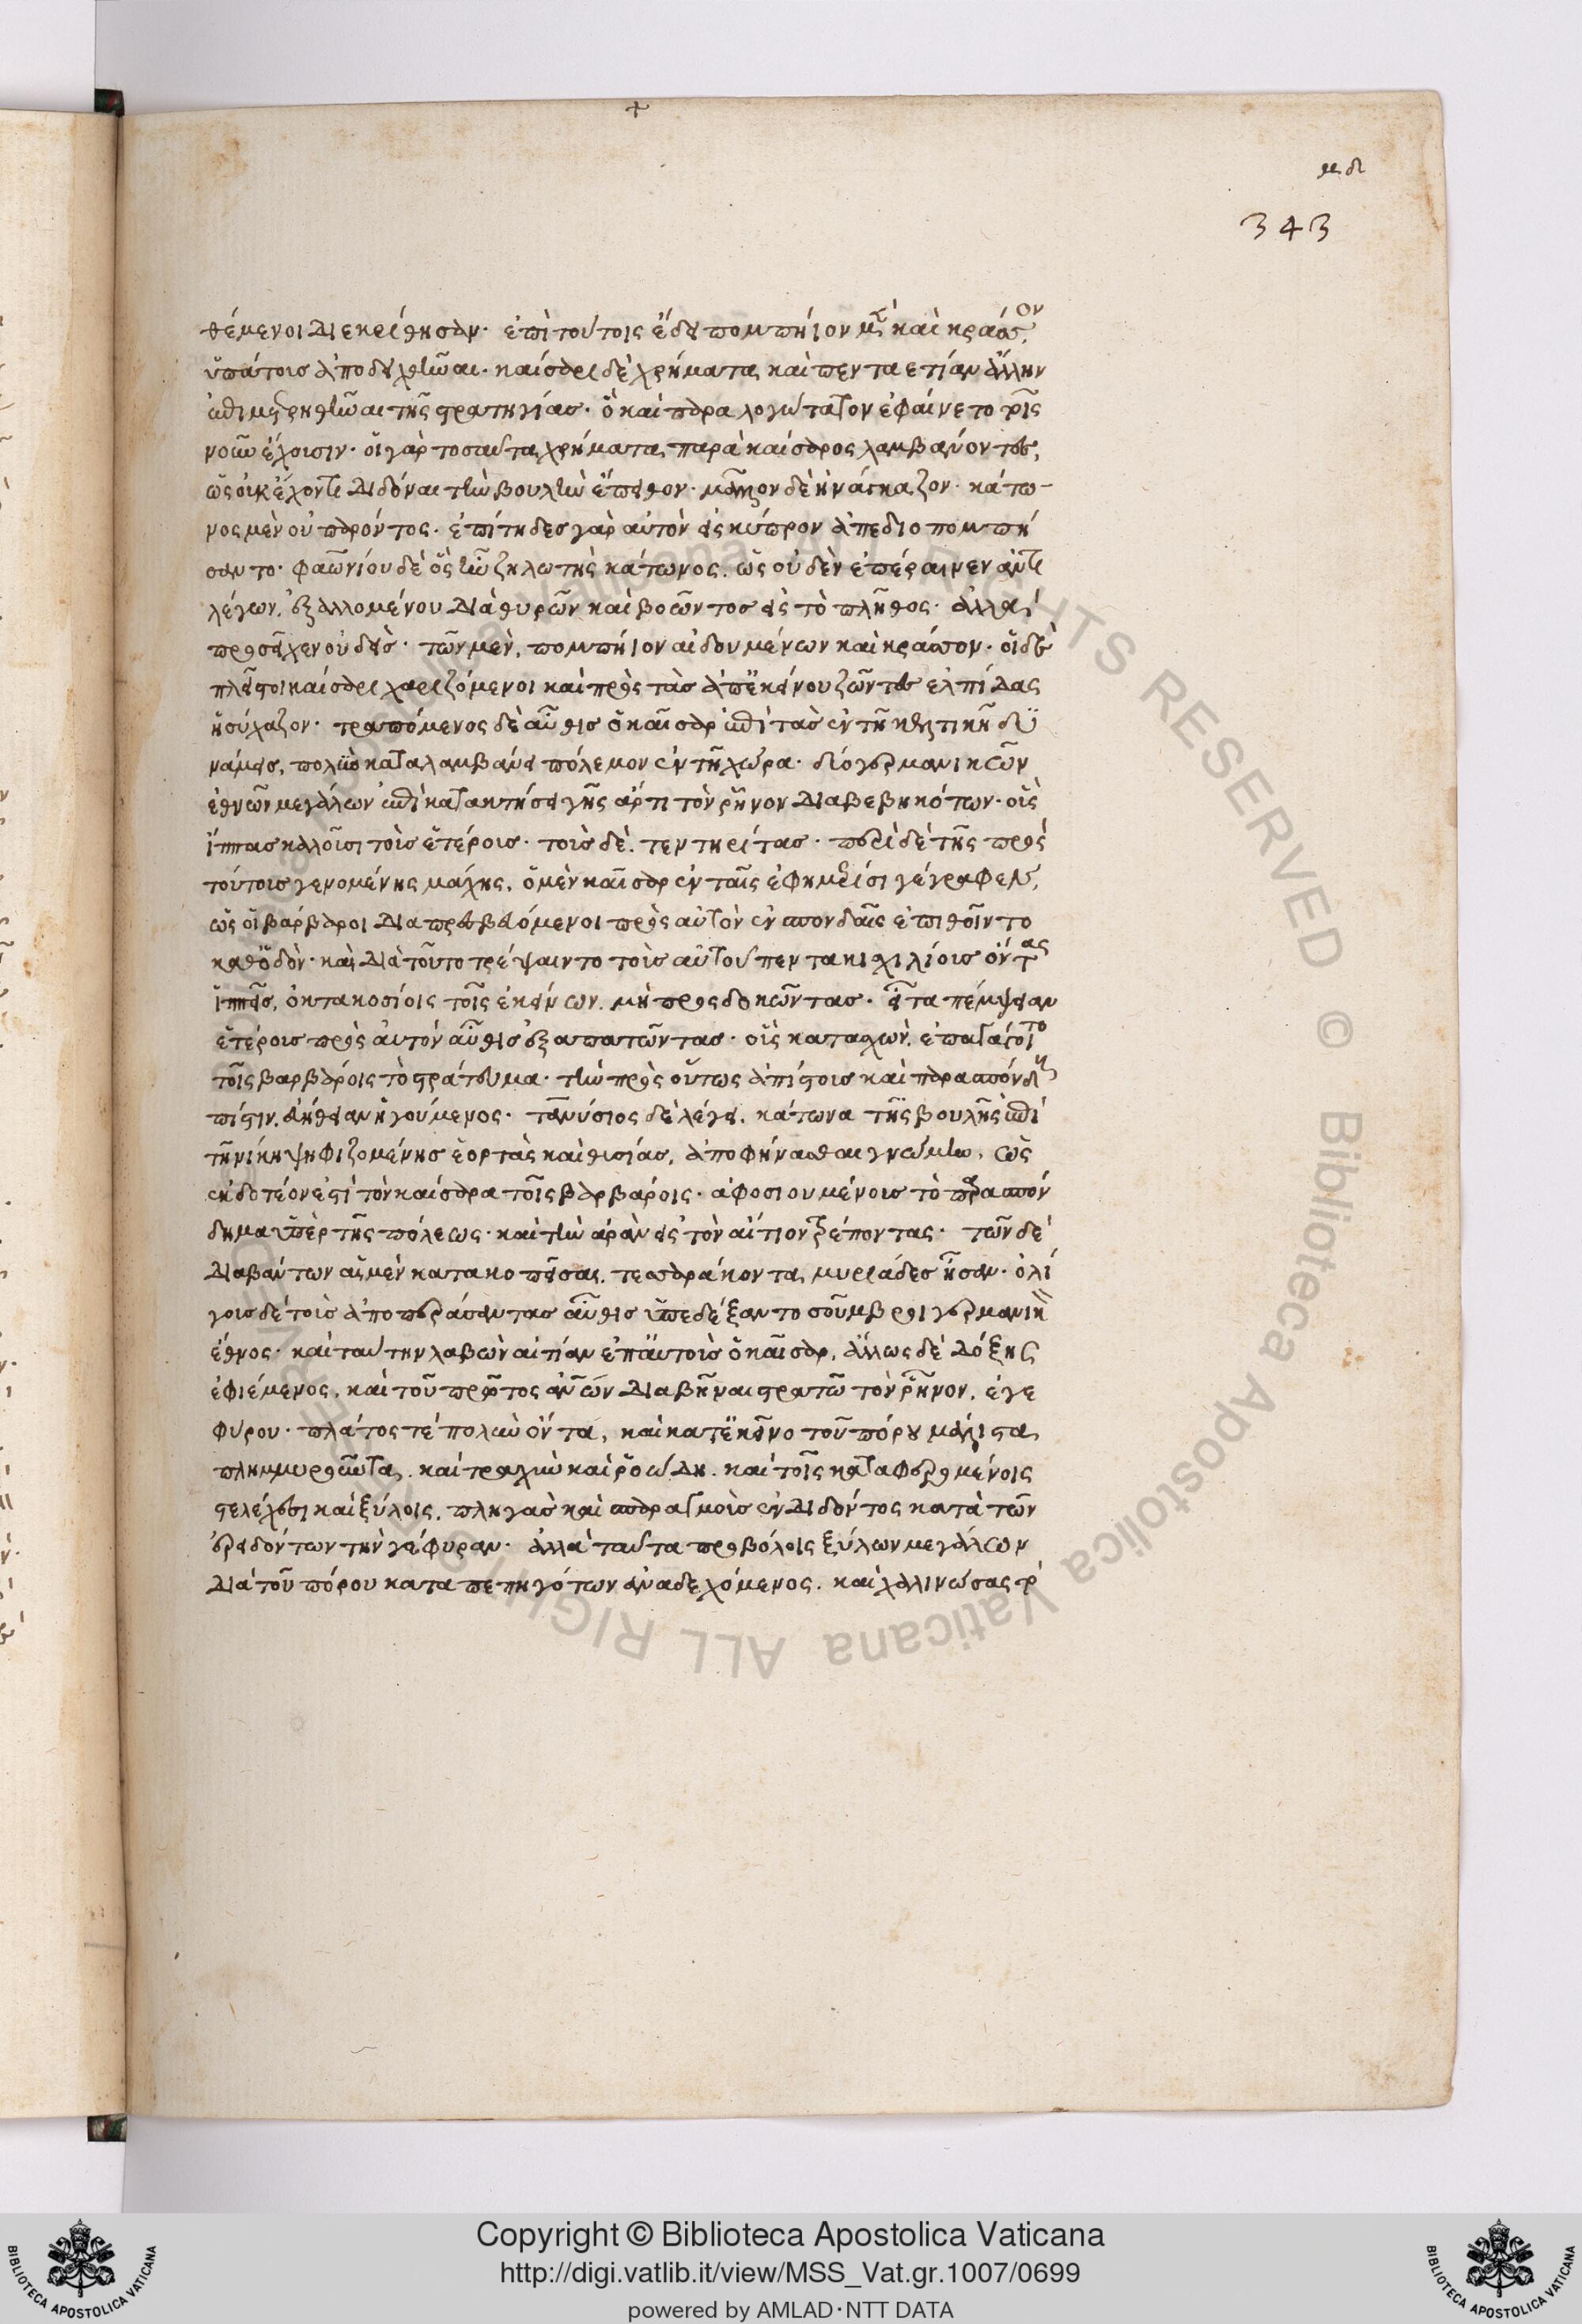 μδ
343
θέμενοι διεκρίθησαν· ἐπὶ τούτοις ἔδει πομπήιον μὲν καὶ κράσσον,
ὑπάτους ἀποδειχθῆναι· καίσαρι δὲ χρήματα καὶ πενταετίαν ἄλλην
ἐπιμετρηθῆναι τῆς στρατηγίας· ὃ καὶ παραλογώτατον ἐφαίνετο τοῖς
νοῦν ἔχουσιν· οἱ γὰρ τοσαῦτα χρήματα παρὰ καίσαρος λαμβάνοντες,
ὡς οὐκ ἔχοντι διδόναι τὴν βουλὴν ἔπειθον· μᾶλλον δὲ ἠνάγκαζον· κάτω-
νος μὲν οὐ παρόντος· ἐπίτηδες γὰρ αὐτὸν εἰς κύπρον ἀπεδιοπομπή
σαντο· φαωνίου δὲ ὃς ἦν ζηλωτὴς κάτωνος, ὡς οὐδὲν ἐπέραινεν ἀντι
λέγων, ἐξαλλομένου διὰ θυρῶν καὶ βοῶντος εἰς τὸ πλῆθος· ἀλλὰ
προσεῖχεν οὐδείς· τῶν μὲν, πομπήιον αἰδουμένων καὶ κράσσον· οἱ δὲ
πλεῖστοι καίσαρι χαριζόμενοι καὶ πρὸς τὰς ἀπ' ἐκείνου ζῶντες ἐλπίδας
ἡσύχαζον· τραπόμενος δὲ αὖθις ὁ καῖσαρ ἐπὶ τὰς ἐν τῇ κελτικῇ δυ
νάμεις, πολὺν καταλαμβάνει πόλεμον ἐν τῇ χώρα· δύο γερμανικῶν
ἐθνῶν μεγάλων ἐπὶ κατακτήσει γῆς ἄρτι τὸν ῥῆνον διαβεβηκότων· οὓς
ἵππας καλοῦσι τοὺς ἑτέρους· τοὺς δὲ, τεντηρίτας· περὶ δὲ τῆς πρὸς
τούτους γενομένης μάχης, ὁ μὲν καῖσαρ ἐν ταῖς ἐφημερίσι γέγραφεν,
ὡς οἱ βάρβαροι διαπρεσβευόμενοι πρὸς αὐτὸν ἐν σπονδαῖς ἐπιθοῖντο
καθ' ὁδὸν· καὶ διὰ τοῦτο τρέψαιντο τοὺς αὐτοῦ πεντακισχιλίους ὄντας
ἱππεῖς, ὀκτακοσίοις τοῖς ἐκείνων, μὴ προσδοκῶντας· εἶτα πέμψειαν
ἑτέρους πρὸς αὐτὸν αὖθις ἐξαπατῶντας· οὓς κατασχὼν, ἐπαγάγοιτο
τοῖς βαρβάροις τὸ στράτευμα· τὴν πρὸς οὕτως ἀπίστους καὶ παρασπόνδους
πίστιν, εὐήθειαν ἡγούμενος· τανύσιος δὲ λέγει, κάτωνα τῆς βουλῆς ἐπὶ
τῇ νίκῃ ψηφιζομένης ἑορτὰς καὶ θυσίας, ἀποφήνασθαι γνώμην, ὡς
ἐκδοτέον ἐστὶ τὸν καίσαρα τοῖς βαρβάροις· ἀφοσιουμένους τὸ παρασπόν
δημα ὑπὲρ τῆς πόλεως· καὶ τὴν ἀρὰν εἰς τὸν αἴτιον τρέποντας· τῶν δὲ
διαβάντων αἱ μὲν κατακοπεῖσαι, τεσσαράκοντα μυριάδες ἦσαν· ὀλί
γους δὲ τοὺς ἀποπεράσαντας αὖθις ὑπεδέξαντο σούμβροι γερμανικὸν
ἔθνος· καὶ ταύτην λαβὼν αἰτίαν ἐπ' αὐτοὺς ὁ καῖσαρ, ἄλλως δὲ δόξης
ἐφιέμενος, καὶ τοῦ πρῶτος ἀνθρώπων διαβῆναι στρατῷ τὸν ῥῆνον, ἐγε
φύρου· πλάτος τὲ πολὺν ὄντα, καὶ κατ' ἐκεῖνο τοῦ πόρου μάλιστα
πλημμυροῦντα, καὶ τραχὺν καὶ ῥοώδη, καὶ τοῖς καταφερομένοις
στελέχεσι καὶ ξύλοις, πληγὰς καὶ σπαραγμοὺς ἐνδιδόντος κατὰ τῶν
ἐρειδόντων τὴν γέφυραν· ἀλλὰ ταῦτα προβόλοις ξύλων μεγάλων
διὰ τοῦ πόρου καταπεπηγότων ἀναδεχόμενος, καὶ χαλινώσας τὸ
Copyright © Biblioteca Apostolica Vaticana
http://digi.vatlib.it/view/MSS_Vat.gr.1007/0699
powered by AMLAD·NTT DATA
BIBLIOTECA APOSTOLICA VATICANA
BIBLIOTECA APOSTOLICA VATICANA